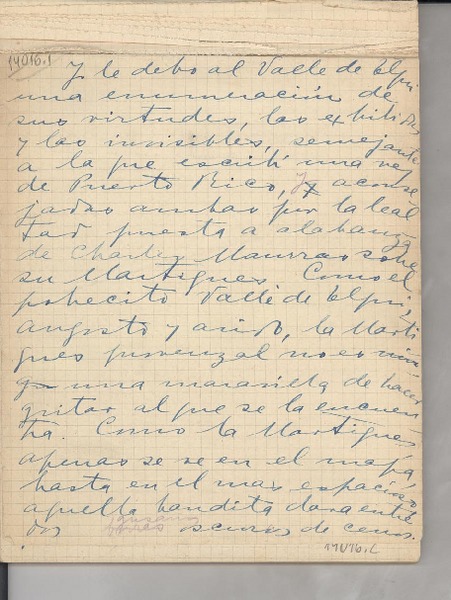 14016.1
Yo le debo al Valle de Elqui
una enumeración de
sus virtudes, las exhibidas
y las invisibles, semejante
a la que escribí una vez
de Puerto Rico, y aconse
jadas ambas por la leal
tad puesta a alabanza
de Charles Maurras sobre
su Martigues. Como el
pobrecito Valle de Elqui,
angosto y arido, la Marti
gues provenzal no es nin
g una maravilla de hacer
gritar al que se la encuen
tra. Como la Martigues
apenas se ve en el mapa
hasta en el mas espacioso
aquella bandita clara entre
dos oscuros de cerros.
14016.1